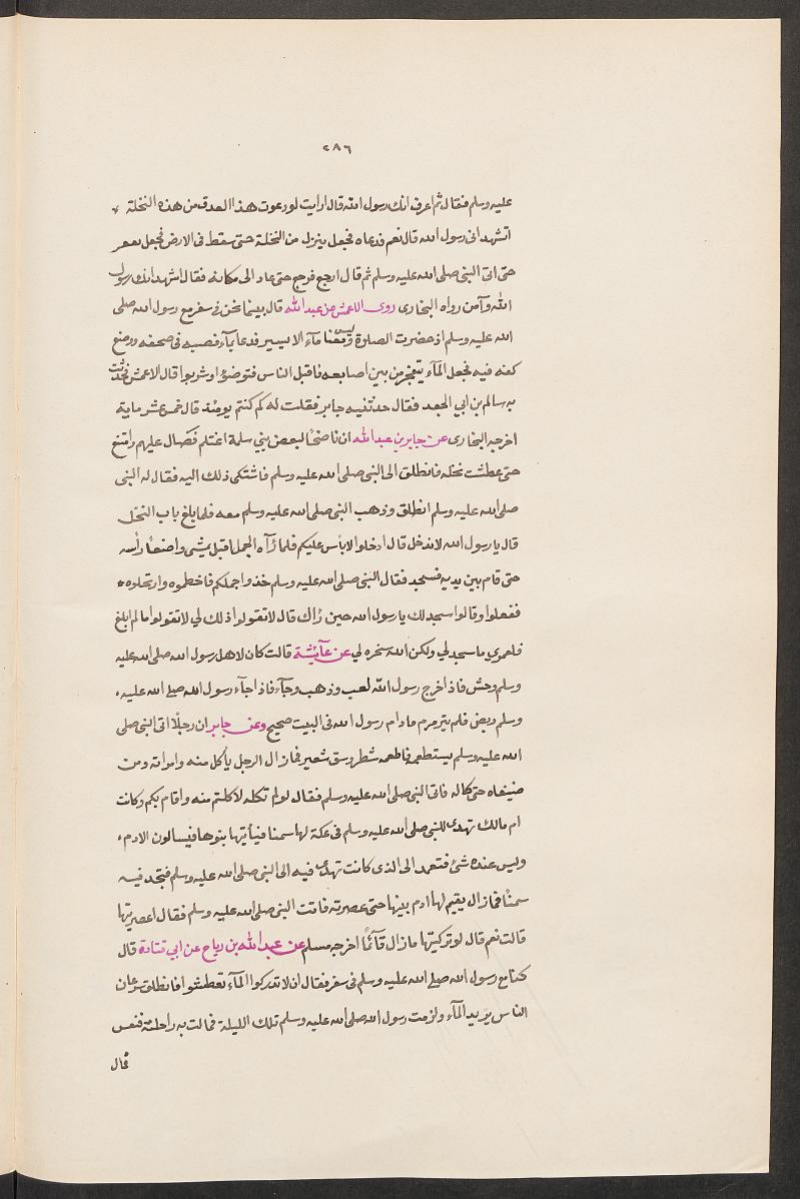 ٢٨٦
عليه وسلم فقال ثم اعرف انك رسول الله قال ارايت لو دعوت هذا العدق من هذه النخلة *
اتشهد انى رسول الله قال نعم فدعاه فجعل ينزل من النخلة حتى سقط فى الارض فجعل
حتى اتى النبى صلى الله عليه وسلم ثم قال ارجع فرجع حتى عاد الى مكانه فقال اشهد انك رسول
الله وآمن رواه البخارى روى الاعمش عن عبد الله قال بينما نحن فى سفر مع رسول الله صلى
الله عليه وسلم اذ حضرت الصلوة وليس معنا مآء الا يسير فدعا بمآء فصبه فى صحفه ووضع
كفه فيه فجعل المآء يتفجر من بين اصابعه فاقبل الناس فتوضؤا وشربوا قال الاعمش فحدثت
به سالم بن ابي الجعد فقال حدثنيه جابر فقلت له كم كنتم يومئذ قال خمس عشر ماية
اخرجه البخارى عن جابر بن عبد الله ان ناضحاً لبعض بني سلمة اغتلم فصال عليهم وامتنع
حتى عطشت نخله فانطلق الى النبى صلى الله عليه وسلم فاشتكى ذلك اليه فقال له النبى
صلى الله عليه وسلم انطلق وذهب النبى صلى الله عليه وسلم معه فلما بلغ باب النخل
قال يا رسول الله لا تدخل قال ادخلوا لا باس عليكم فلما رُآه الجمل اقبل يمشى واضعاً رأسه
حتى قام بين يديه فسجد فقال النبى صلى الله عليه وسلم خذوا جملكم فاخطموه وارتحلوه *
ففعلوا وقالوا سجد لك يا رسول الله حين رُاك قال لا تقولوا ذلك لي لا تقولوا ما لم ابلغ
فلعمرى ما سجد لي ولكن الله سخره لي عن عآيشة قالت كان لاهل رسول الله صلى الله عليه
وسلم وحش فاذا خرج رسول الله لعب وذهب وجآء فاذا جآء رسول الله صلى الله عليه .
وسلم ربض فلم يترمرم ما دام رسول الله فى البيت صحيح وعن جابر ان رجلًا اتى النبى صلى
الله عليه وسلم يستطعم فاطعمه شطر وسق شعير فما زال الرجل يأكل منه وامراته ومن
ضيفاه حتى كاله فاتى النبى صلى الله عليه وسلم فقال لو لم تكله لاكلتم منه واقام بكم وكانت
ام مالك تهدى للنبى صلى الله عليه وسلم فى عكة لها سمنا فيأتيها بنوها فيسالون الادم .
وليس عنده شئ فتعمد الى الذى كانت تهدى فيه الى النبى صلى الله عليه وسلم فتجد فيه
سمنًا فما زال يقيم لها ادم بيتها حتى عصرته فاتت النبى صلى الله عليه وسلم فقال اعصريتها
قالت نعم قال لو تركيتها ما زال قآئمًا اخرجه مسلم عن عبد الله بن رباح عن ابي قتادة قال
كنا مع رسول الله صلى الله عليه وسلم فى سفر فقال ان لا تدركوا المآء تعطشوا فانطلق سرعان
الناس يريد المآء ولزمت رسول الله صلى الله عليه وسلم تلك الليلة فمالت به راحلته فنعس
فمال